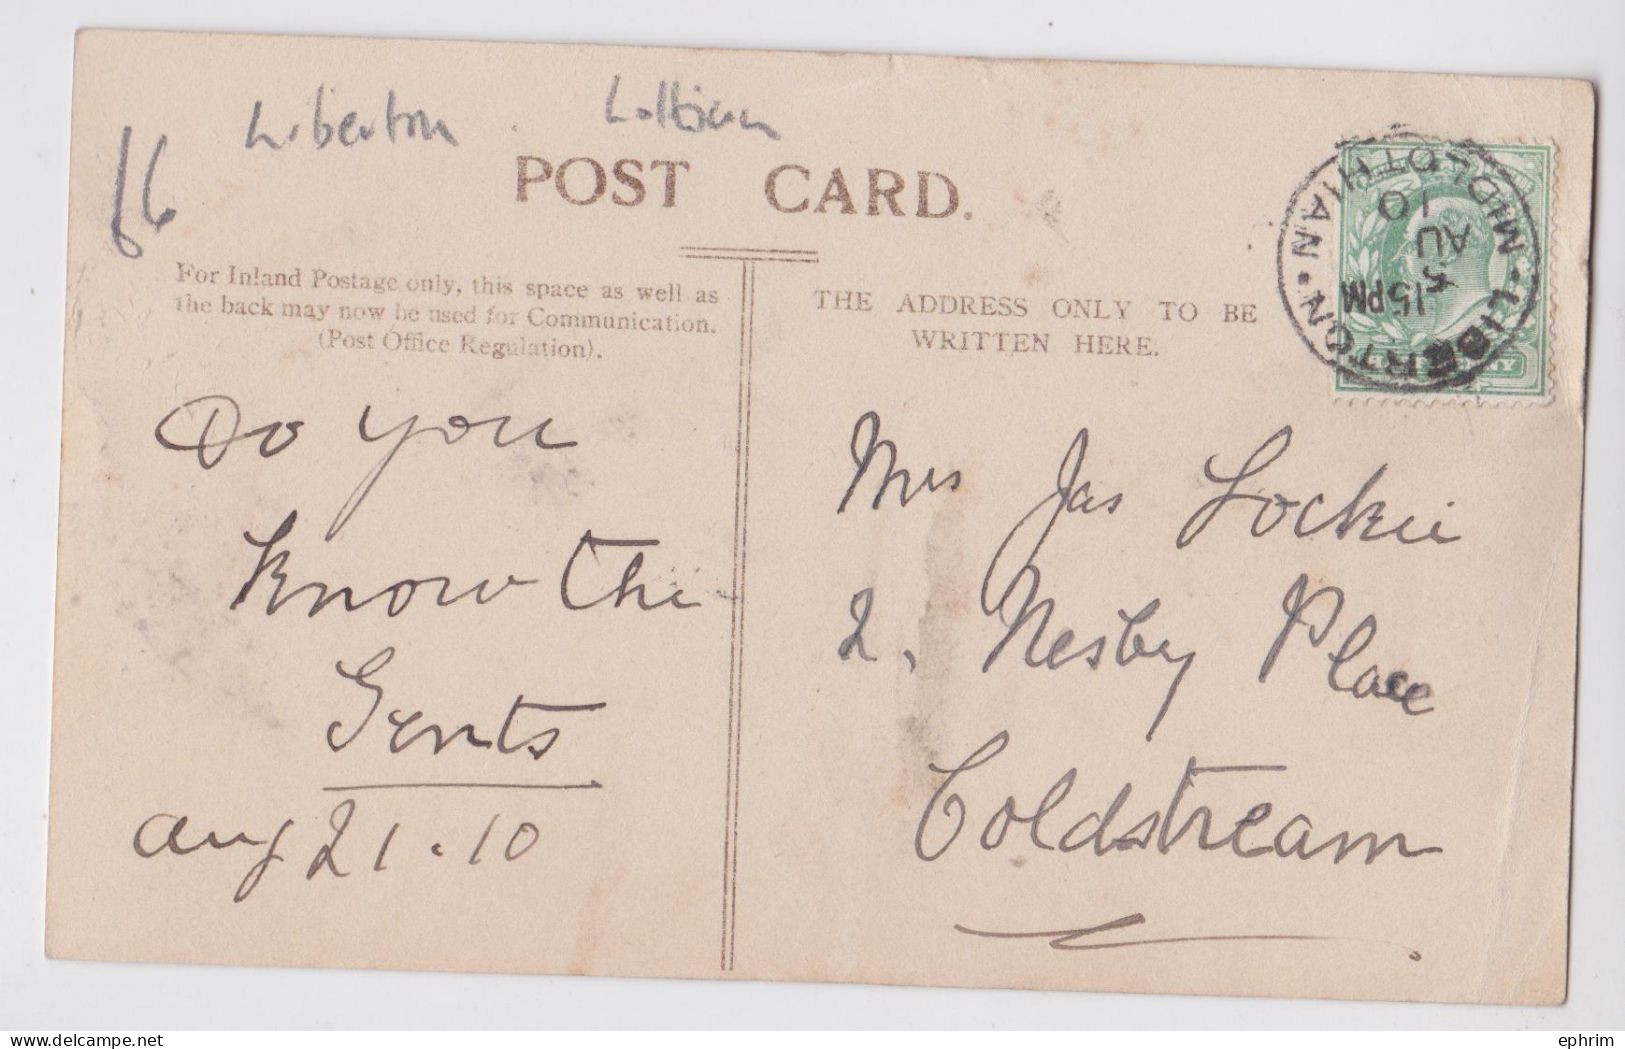 Liberton . Lothian
66
POST CARD.
For Inland Postage only, this space as well as
the back may now be used for Communication.
(Post Office Regulation).
THE ADDRESS ONLY TO BE
WRITTEN HERE.
LIBERTON • MIDLOTHIAN •
15 PM
AU
10
Do you
know the
Gents
Aug 21.10
Mrs Jas Lockie
2, Nesby Place
Coldstream
delcampe.net
ephrim